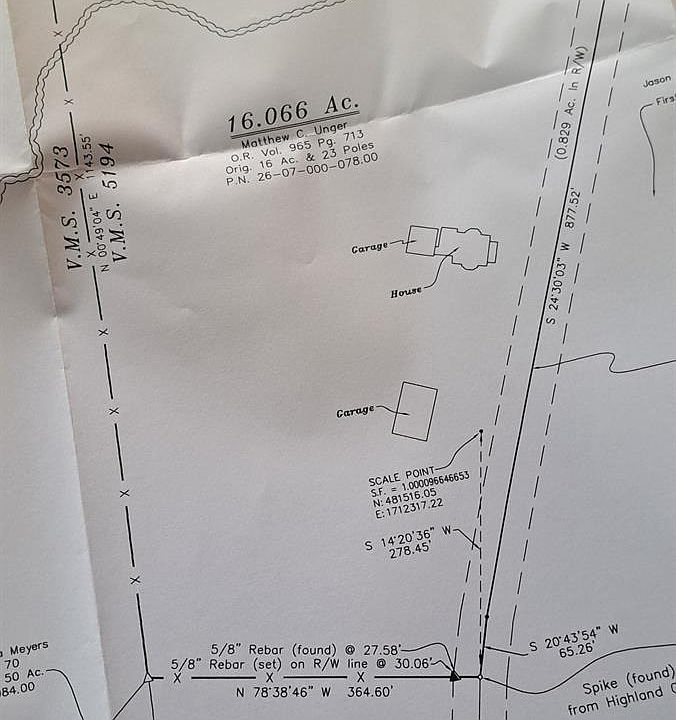 16.066 Ac.
Matthew C. Unger
O.R. Vol. 965 Pg. 713
Orig. 16 Ac. & 23 Poles
P.N. 26-07-000-078.00
(0.829 Ac. In R/W)
Jason
First
V.M.S. 3573
N 00°49'04" E 1143.55'
V.M.S. 5194
S 24°30'03" W 877.52'
Garage
House
Garage
SCALE POINT
S.F. = 1.000096646653
N: 481516.05
E: 1712317.22
S 14°20'36" W
278.45'
S 20°43'54" W
65.26'
Meyers
70
50 Ac.
84.00
5/8" Rebar (found) @ 27.58'
5/8" Rebar (set) on R/W line @ 30.06'
X X X
N 78°38'46" W 364.60'
Spike (found)
from Highland